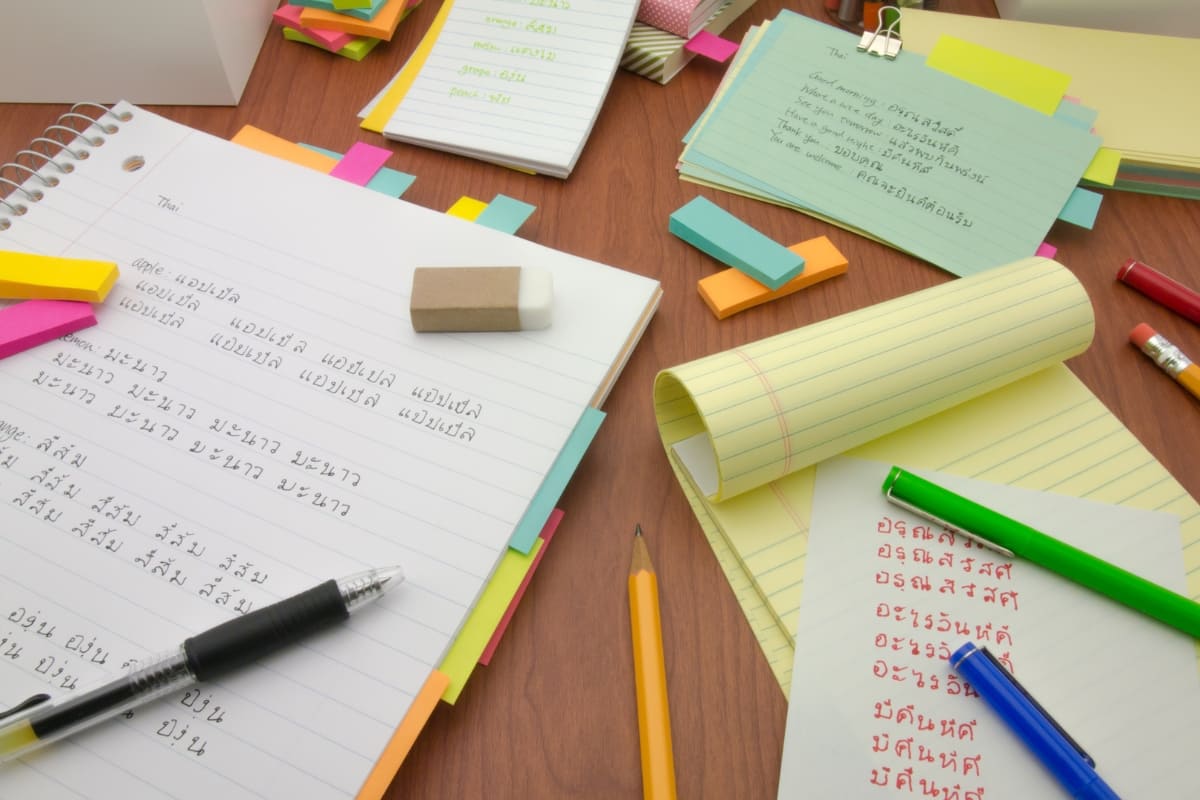 Thai
apple : แอปเปิล
แอปเปิล แอปเปิล แอปเปิล แอปเปิล
แอปเปิล แอปเปิล แอปเปิล แอปเปิล
มะนาว
มะนาว มะนาว มะนาว มะนาว
มะนาว มะนาว มะนาว มะนาว
สีส้ม
สีส้ม สีส้ม สีส้ม สีส้ม
สีส้ม สีส้ม สีส้ม สีส้ม
องุ่น องุ่น
องุ่น องุ่น
องุ่น
orange : สีส้ม
grape : องุ่น
peach : พีช
Thai
Good morning : อรุณสวัสดิ์
Have a nice day : อะไรวันที่ดี
See you tomorrow : แล้วพบกันพรุ่งนี้
Have a good night : มีคืนที่ดี
Thank you : ขอบคุณ
You are welcome : คุณจะยินดีต้อนรับ
อรุณสวัสดิ์
อรุณสวัสดิ์
อะไรวันที่ดี
มีคืนที่ดี
มีคืนที่ดี
มีคืนที่ดี